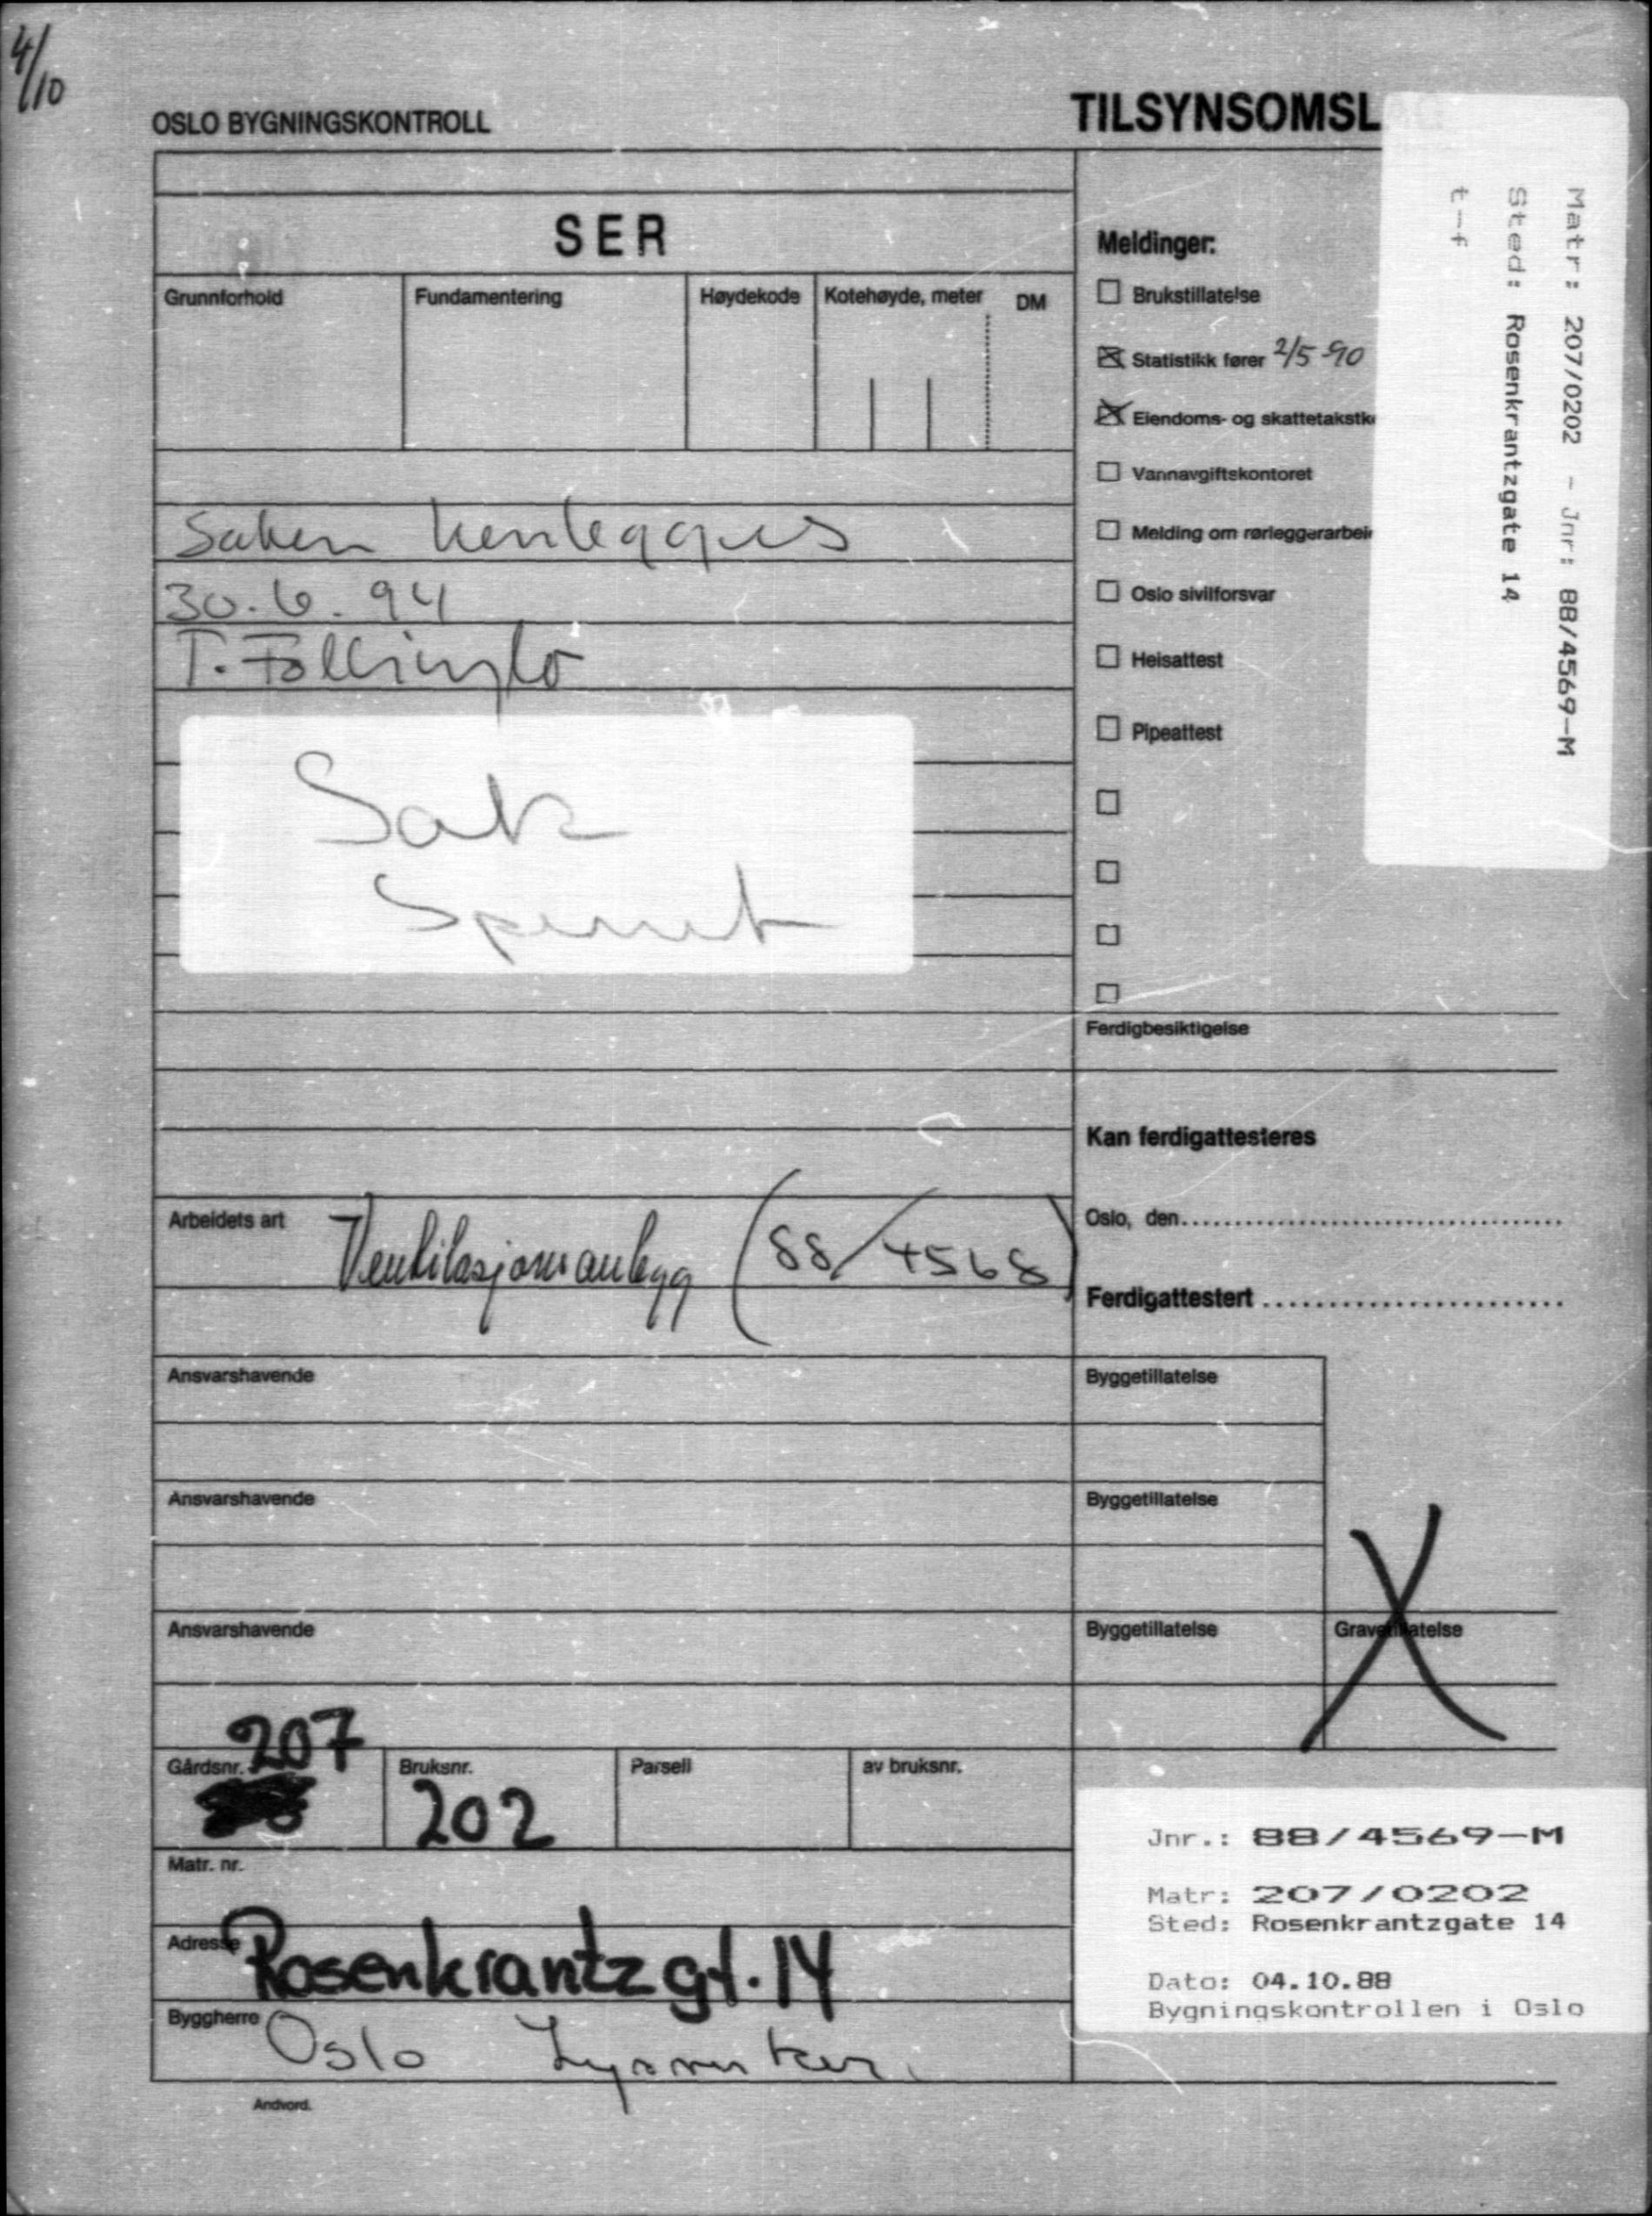 4/10
OSLO BYGNINGSKONTROLL
TILSYNSOMSL
SER
Grunnforhold
Fundamentering
Høydekode
Kotehøyde, meter
DM
Saken henlegges
30.6.94
T.
Sak
Sperret
Meldinger:
Brukstillatelse
Statistikk fører 2/5-90
Eiendoms- og skattetakstk
Vannavgiftskontoret
Melding om rørleggerarbei
Oslo sivilforsvar
Heisattest
Pipeattest
Matr: 207/0202 - Jnr: 88/4569-M
Sted: Rosenkrantzgate 14
t-f
Ferdigbesiktigelse
Kan ferdigattesteres
Oslo, den
Ferdigattestert
Arbeidets art Ventilasjonsanlegg (88/4568)
Ansvarshavende
Byggetillatelse
Ansvarshavende
Byggetillatelse
Ansvarshavende
Byggetillatelse
Gravetillatelse
Gårdsnr. 207
Bruksnr. 202
Parsell
av bruksnr.
Matr. nr.
Adresse Rosenkrantzgt. 14
Byggherre Oslo
Andvord.
Jnr.: 88/4569-M
Matr: 207/0202
Sted: Rosenkrantzgate 14
Dato: 04.10.88
Bygningskontrollen i Oslo